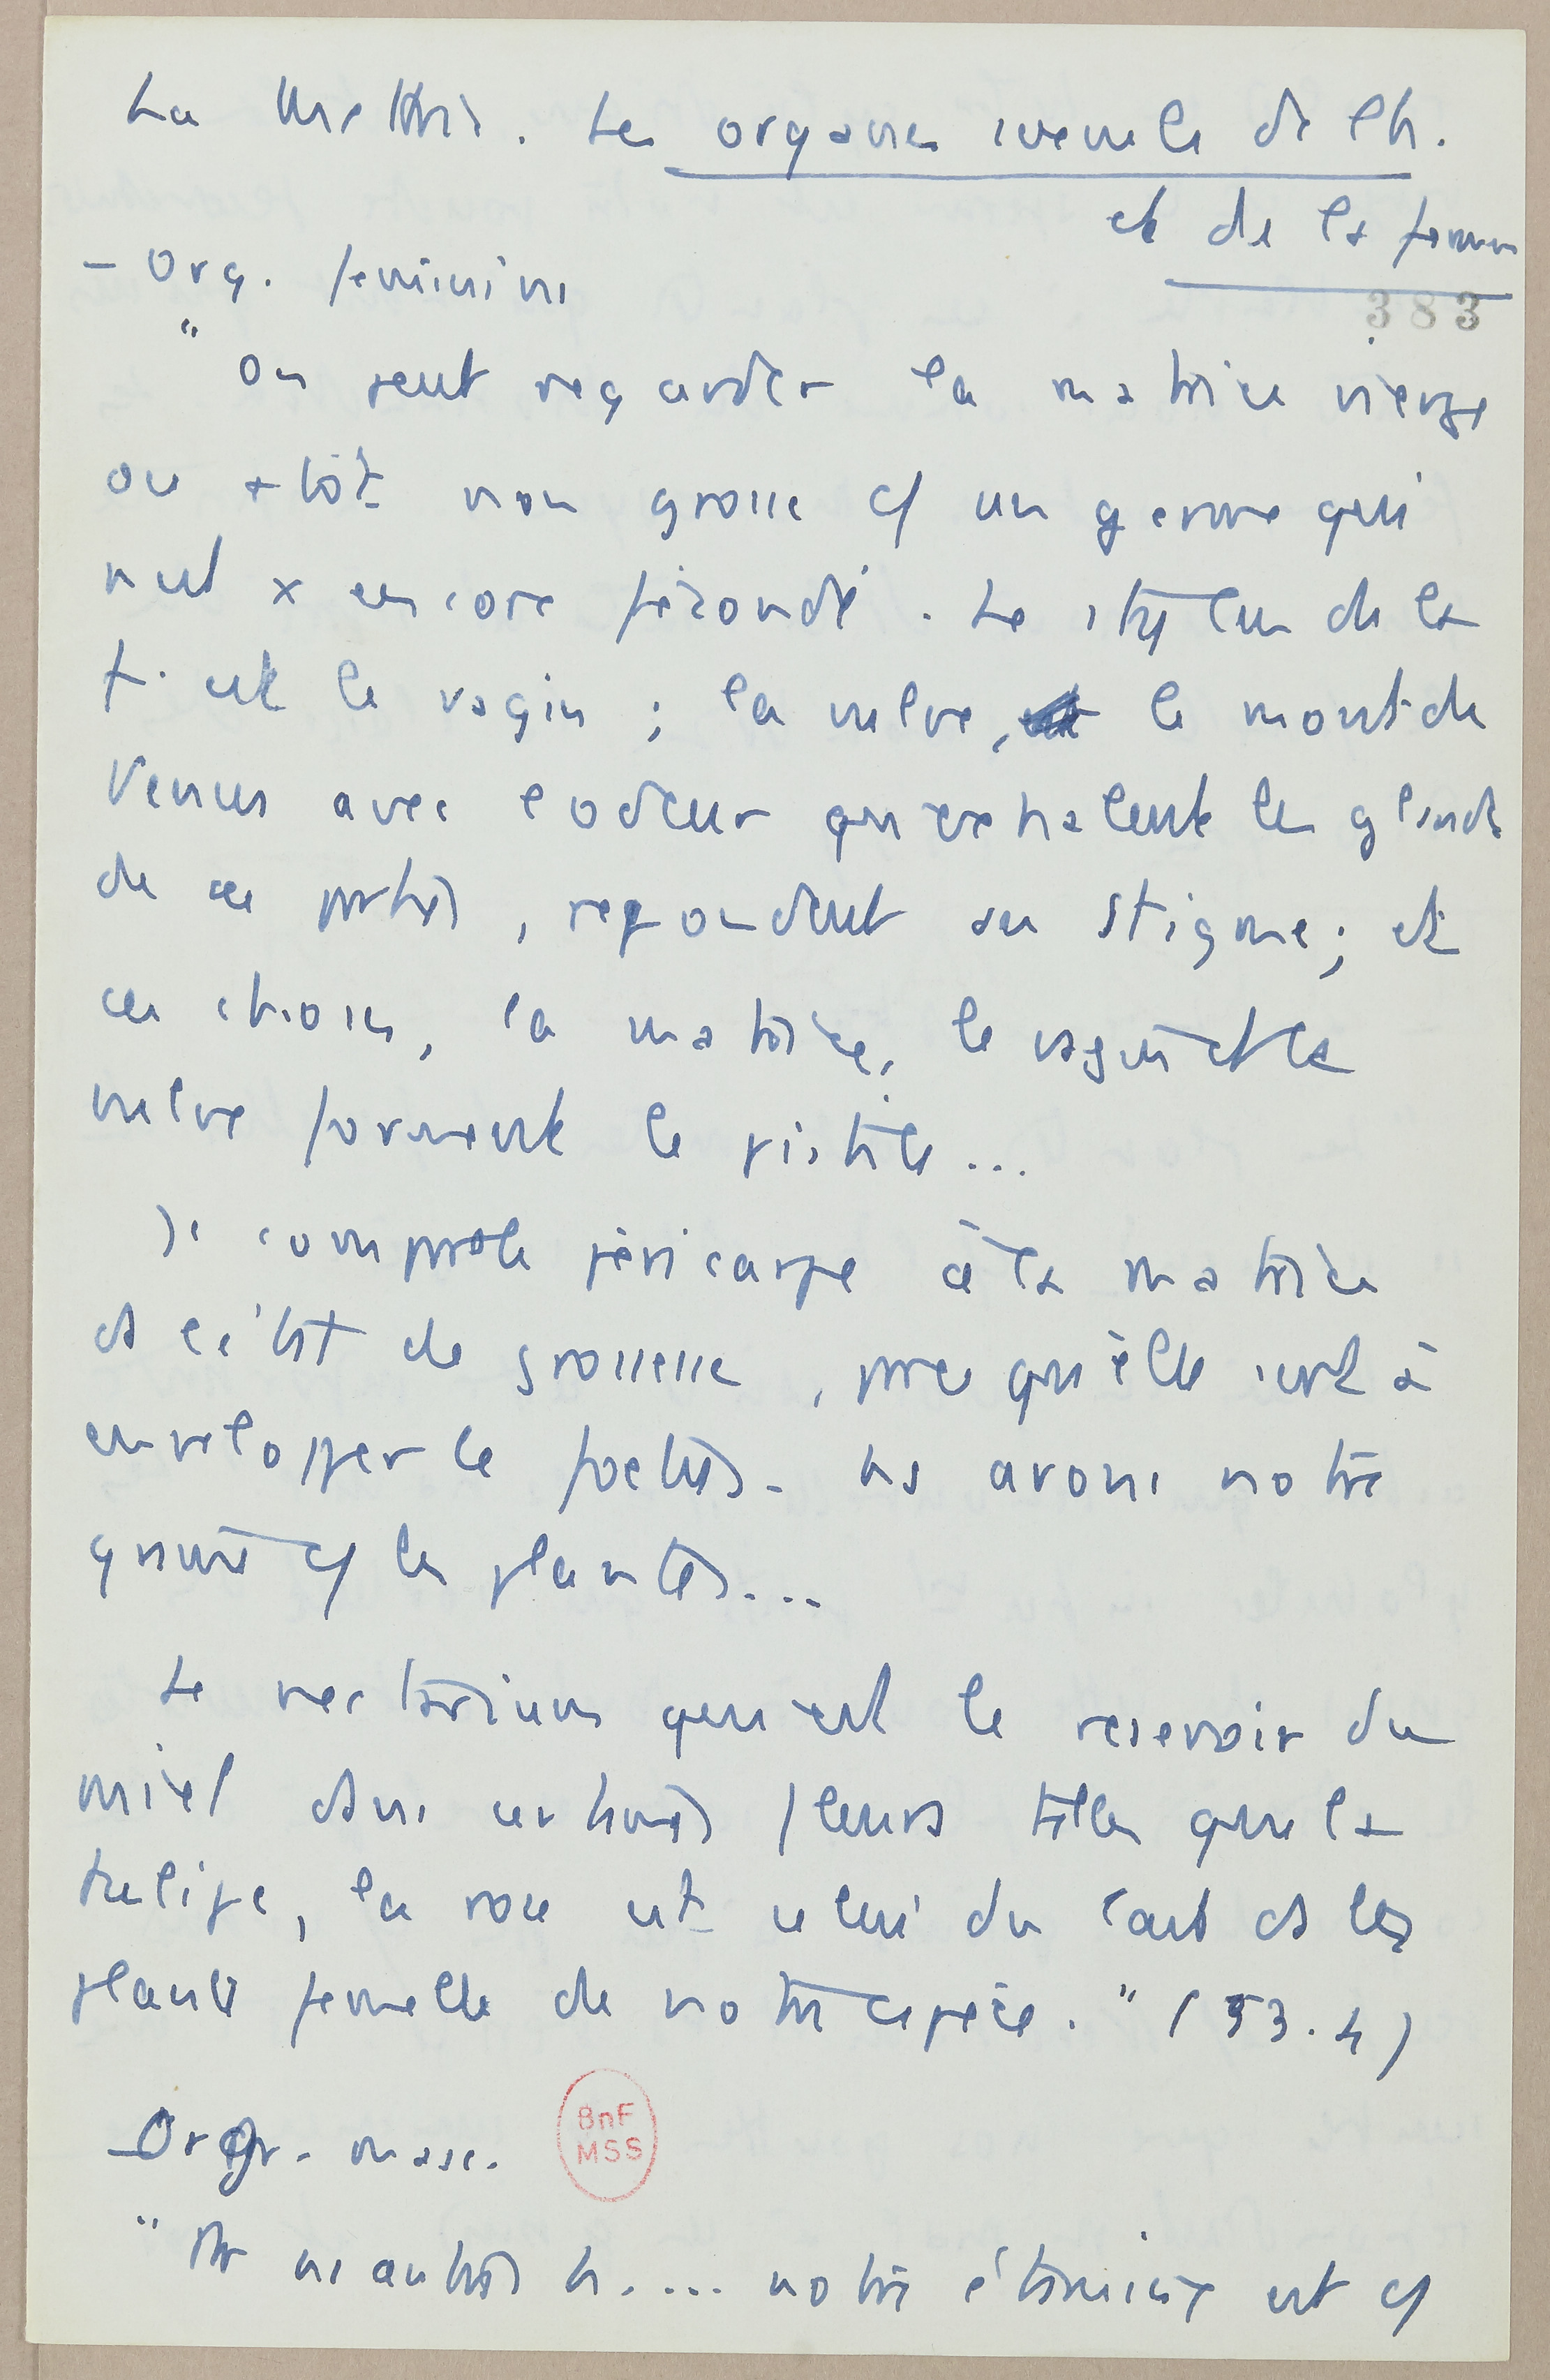 La Mettrie. Les organes sexuels de l'h.
et de la femme
383
- Org. féminins
"On peut regarder la matrice vierge
ou +tôt non grosse c/ un germe qui
n'est x encore fécondé. Le stylus de la
f. est le vagin ; la vulve, le mont de
Venus avec l'odeur qu'exhalent les glandes
de ces parties, repondent au stigme ; et
ces choses, la matrice, le vagin et la
vulve forment le pistile...
Je compare le péricarpe à la matrice
ds l'état de grossesse, parce qu'elle sert à
envelopper le foetus. Ns avons notre
graine c/ les plantes...
Le nectarium qui est le reservoir du
miel dans certaines fleurs telles que la
tulipe, la rose est celui du lait ds la
plante femelle de notre espèce." (53.4)
- Org. masc.
" Ns autres h.... notre étamine est c/
BnF
MSS